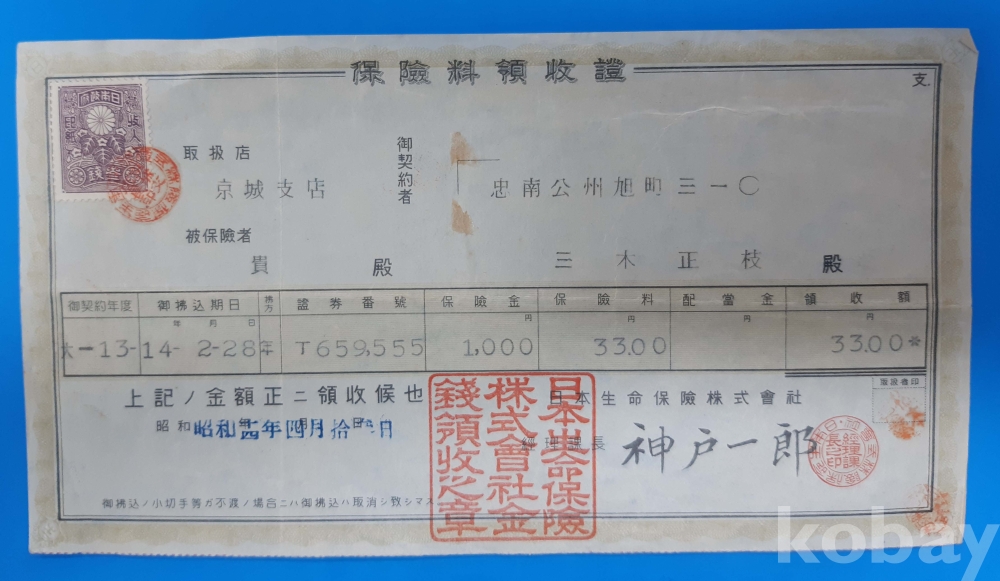 保險料領收證
支.
日本政府
收入印紙
參錢
取扱店
京城支店
御契約者
忠南公州旭町三一〇
被保險者
貴 殿
三木正枝 殿
御契約年度 御拂込期日 拂方 證券番號 保險金 保險料 配當金 領收額
年 月 日 円 円 円 円
大一13- 14- 2-28 年 T659,555 1,000 33.00 33.00*
上記ノ金額正ニ領收候也
日本生命保險株式會社
昭和 年 月 日
經理課長 神戸一郎
日本生命保險株式會社金錢領收之章
經理課長之印
御拂込ノ小切手等ガ不渡ノ場合ニハ御拂込ハ取消シ致シマス
kobay